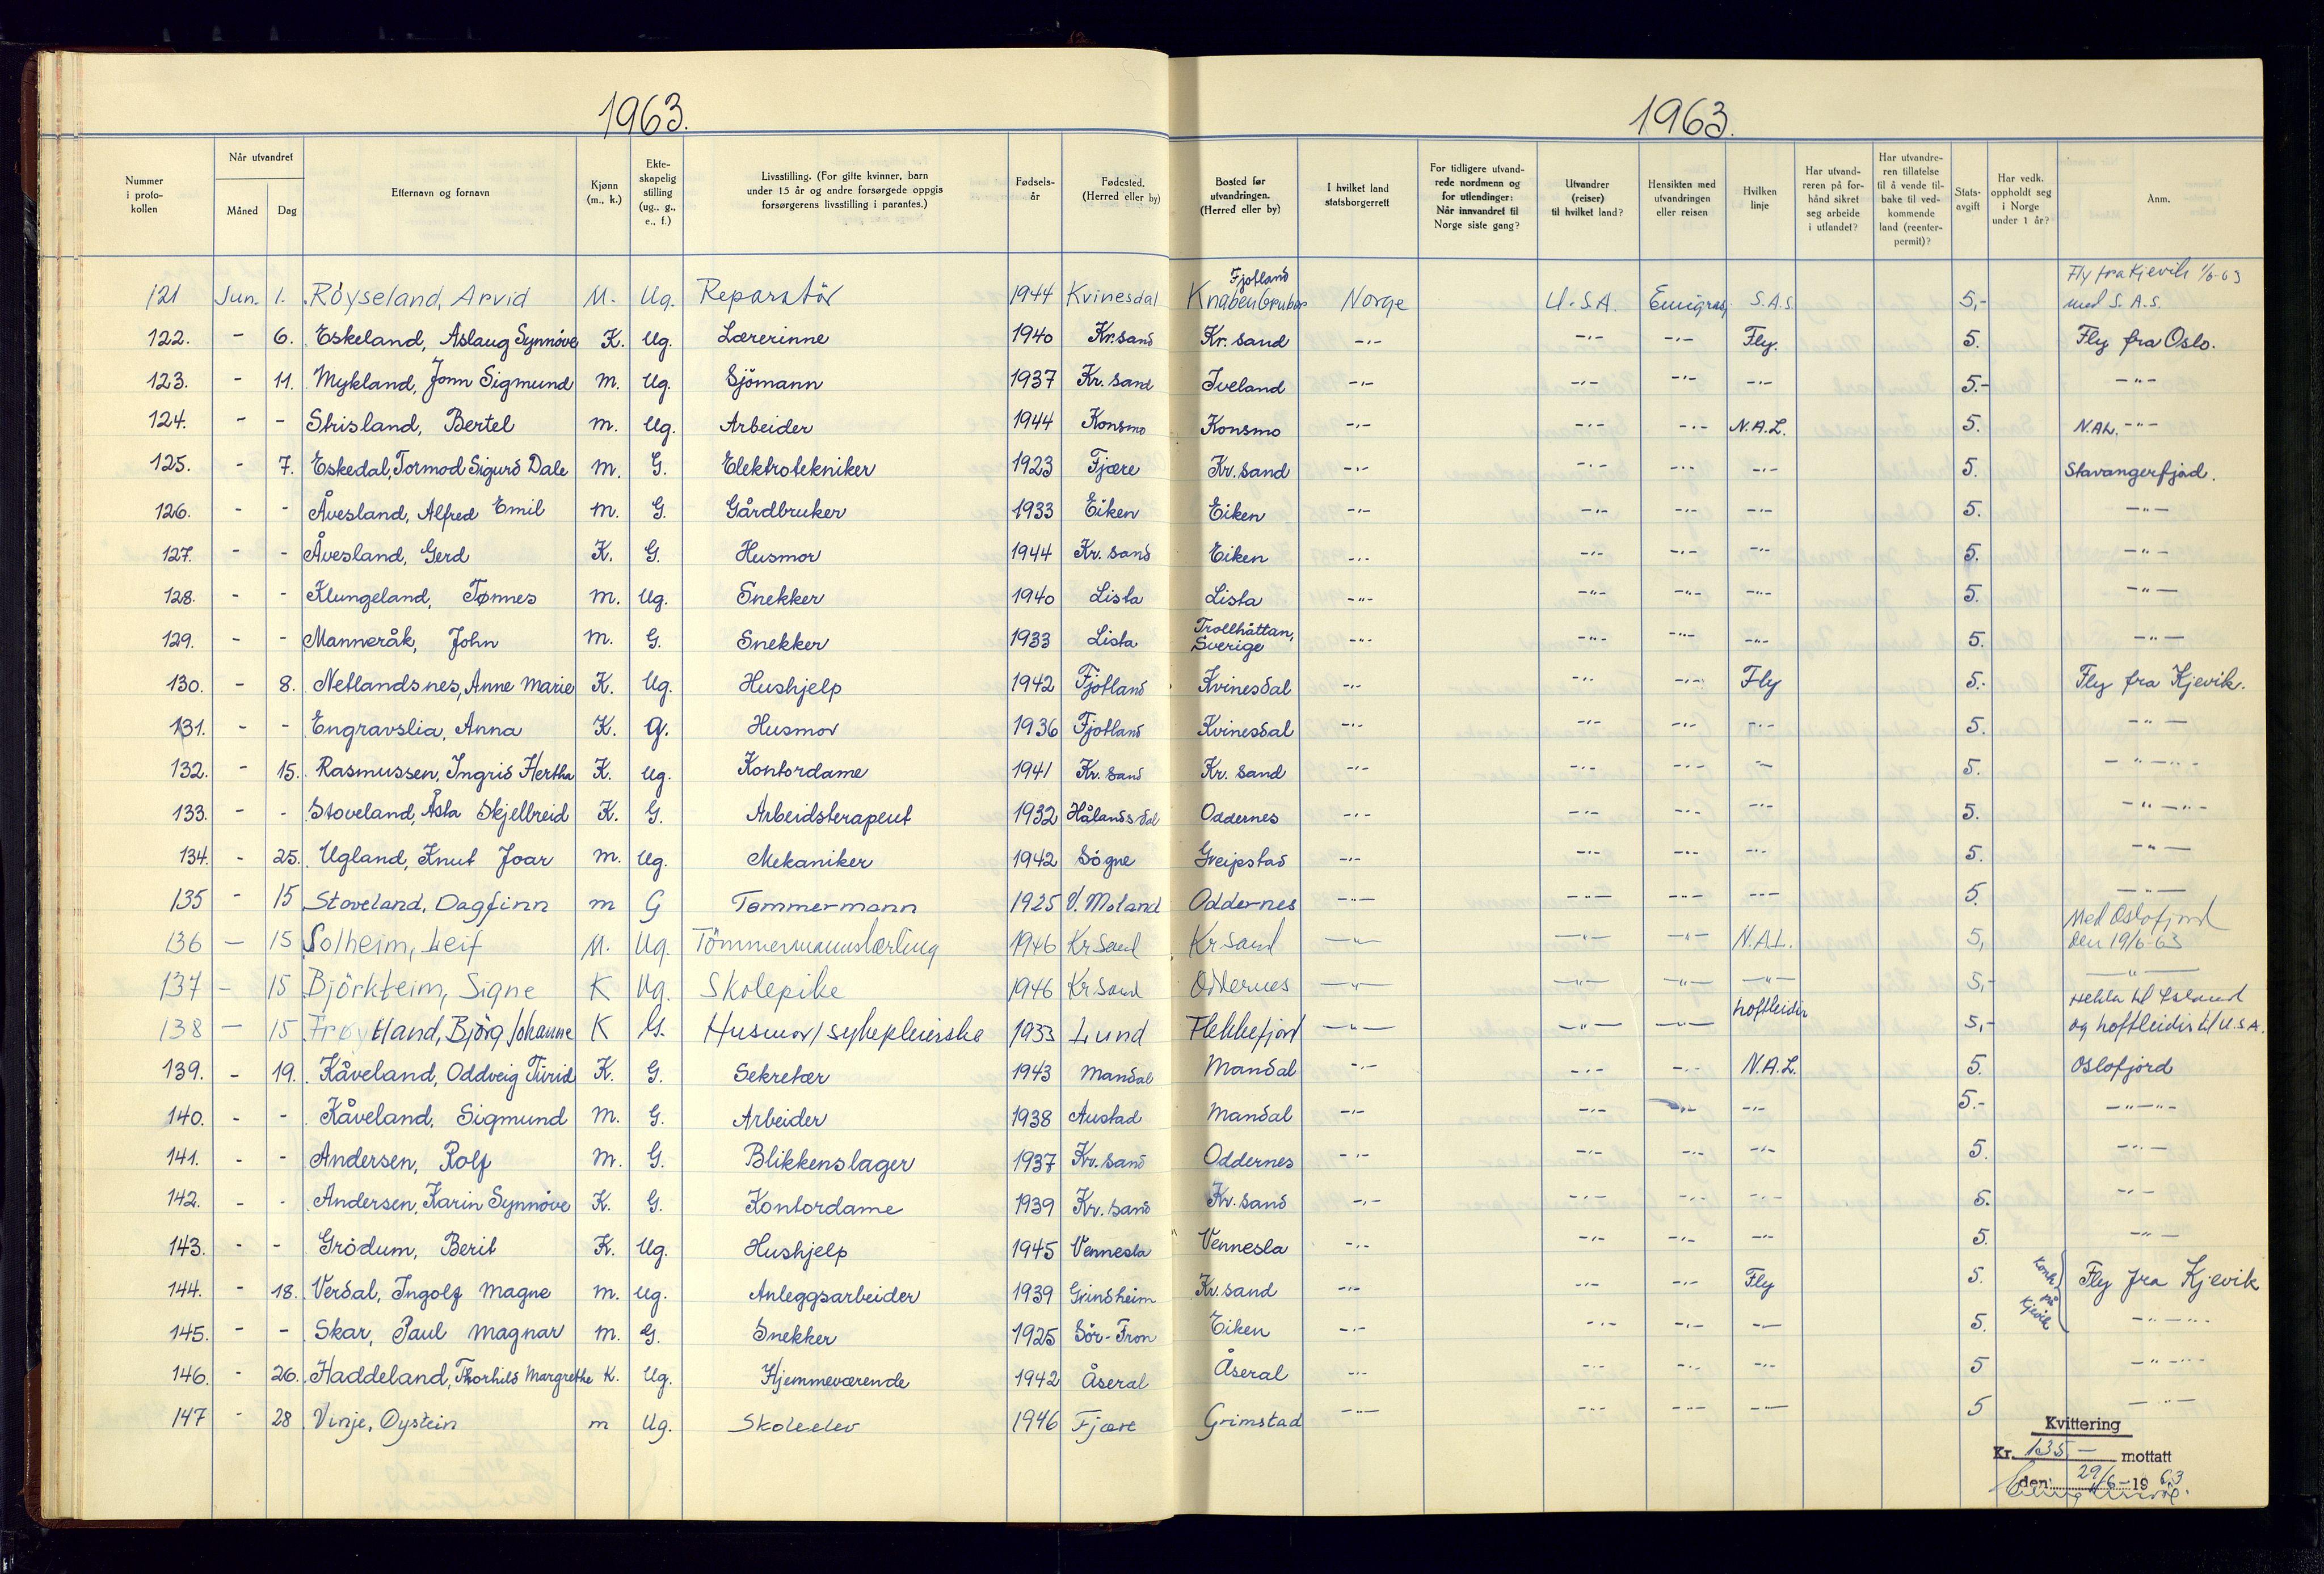 1963.
1963.
Nummer i protokollen
Når utvandret
Måned
Dag
Etternavn og fornavn
Kjønn (m., k.)
Ekteskapelig stilling (ug., g., e., f.)
Livsstilling. (For gifte kvinner, barn under 15 år og andre forsørgede oppgis forsørgerens livsstilling i parantes.)
Fødselsår
Fødested. (Herred eller by)
Bosted før utvandringen. (Herred eller by)
I hvilket land statsborgerrett
For tidligere utvandrede nordmenn og for utlendinger: Når innvandret til Norge siste gang?
Utvandrer (reiser) til hvilket land?
Hensikten med utvandringen eller reisen
Hvilken linje
Har utvandreren på forhånd sikret seg arbeide i utlandet?
Har utvandreren tillatelse til å vende tilbake til vedkommende land (reenterpermit)?
Statsavgift
Har vedk. oppholdt seg i Norge under 1 år?
Anm.
121 Jun. 1. Röyseland, Arvid M. Ug. Reparatör 1944 Kvinesdal Fjotland Knaben Gruber Norge U.S.A. Emigras. S.A.S. 5,- Fly fra Kjevik 1/6-63 med S.A.S.
122. - 6. Eskeland, Aslaug Synnöve K. Ug. Lærerinne 1940 Kr.sand Kr. sand -"- -"- -"- Fly. 5. Fly fra Oslo.
123. - 11. Mykland, Jonn Sigmund M. Ug. Sjömann 1937 Kr. sand Iveland -"- -"- -"- -"- 5.- -"-
124. - - Strisland, Bertel M. Ug. Arbeider 1944 Konsmo Konsmo -"- -"- -"- N.A.L. 5. N.A.L. -"-
125. - 7. Eskedal, Tormod Sigurd Dale M. G. Elektrotekniker 1923 Fjære Kr. sand -"- -"- -"- -"- 5. Stavangerfjord.
126. - - Åvesland, Alfred Emil M. G. Gårdbruker 1933 Eiken Eiken -"- -"- -"- -"- 5. -"-
127. - - Åvesland, Gerd K. G. Husmor 1944 Kr. sand Eiken -"- -"- -"- -"- 5. -"-
128. - - Klungeland, Tønnes M. Ug. Snekker 1940 Lista Lista -"- -"- -"- -"- 5. -"-
129. - - Manneråk, John M. G. Snekker 1933 Lista Trollhättan, Sverige -"- -"- -"- -"- 5. -"-
130. - 8. Netlandsnes, Anne Marie K. Ug. Hushjelp 1942 Fjotland Kvinesdal -"- -"- -"- Fly 5.- Fly fra Kjevik.
131. - - Engravslia, Anna K. G. Husmor 1936 Fjotland Kvinesdal -"- -"- -"- -"- 5. -"-
132. - 15. Rasmussen, Ingrid Hertha K. Ug. Kontordame 1941 Kr. sand Kr. sand -"- -"- -"- -"- 5. -"-"-
133. - - Stoveland, Åsta Skjelbreid K. G. Arbeidsterapeut 1932 Hålandsdal Oddernes -"- -"- -"- -"- 5. -"-"-
134. - 25. Ugland, Knut Joar M. Ug. Mekaniker 1942 Sögne Greipstad -"- -"- -"- -"- 5. -"-
135 - 15 Stoveland, Dagfinn m G Tømmermann 1925 V. Moland Oddernes -"- -"- -"- -"- 5. -"-
136 - 15 Solheim, Leif M. Ug. Tömmermannslærling 1946 Kr.Sand Kr.Sand -"- -"- -"- N.A.L. 5, Med Oslofjord den 19/6-63
137 - 15 Björkteim, Signe K Ug. Skolepike 1946 Kr.Sand Oddernes -"- -"- -"- -"- 5,- -"-
138 - 15 Frøytland, Björg Johanne K G. Husmor/sykepleierske 1933 Lund Flekkefjord -"- -"- -"- Loftleidir 5,- Hekla til Island og Loftleidir til U.S.A.
139. - 19. Kåveland, Oddveig Turid K. G. Sekretær 1943 Mandal Mandal -"- -"- -"- N.A.L. 5. Oslofjord
140. - - Kåveland, Sigmund M. G. Arbeider 1938 Austad Mandal -"- -"- -"- -"- 5.- -"-"-
141. - - Andersen, Rolf M. G. Blikkenslager 1937 Kr. sand Oddernes -"- -"- -"- -"- 5. -"-
142. - - Andersen, Karin Synnöve K. G. Kontordame 1939 Kr. sand Kr. sand -"- -"- -"- -"- 5. -"-
143. - - Grödum, Berit K. Ug. Hushjelp 1945 Vennesla Vennesla -"- -"- -"- -"- 5. -"-
144. - 18. Verdal, Ingolf Magne M. Ug. Anleggsarbeider 1939 Grindheim Kr. sand -"- -"- -"- Fly 5. Kontr. på Kjevik Fly fra Kjevik
145. - - Skar, Paul Magnar M. G. Snekker 1925 Sör-Fron Eiken -"- -"- -"- -"- 5. -"-"-
146. - 26. Haddeland, Thorhild Margrethe K. Ug. Hjemmeværende 1942 Åseral Åseral -"- -"- -"- -"- 5 -"-"-
147 - 28 Vinje, Øystein m Ug. Skoleelev 1946 Fjære Grimstad -"- -"- -"- -"- 5 -"-
Kvittering
Kr. 135,- mottatt
den 29/6-1963